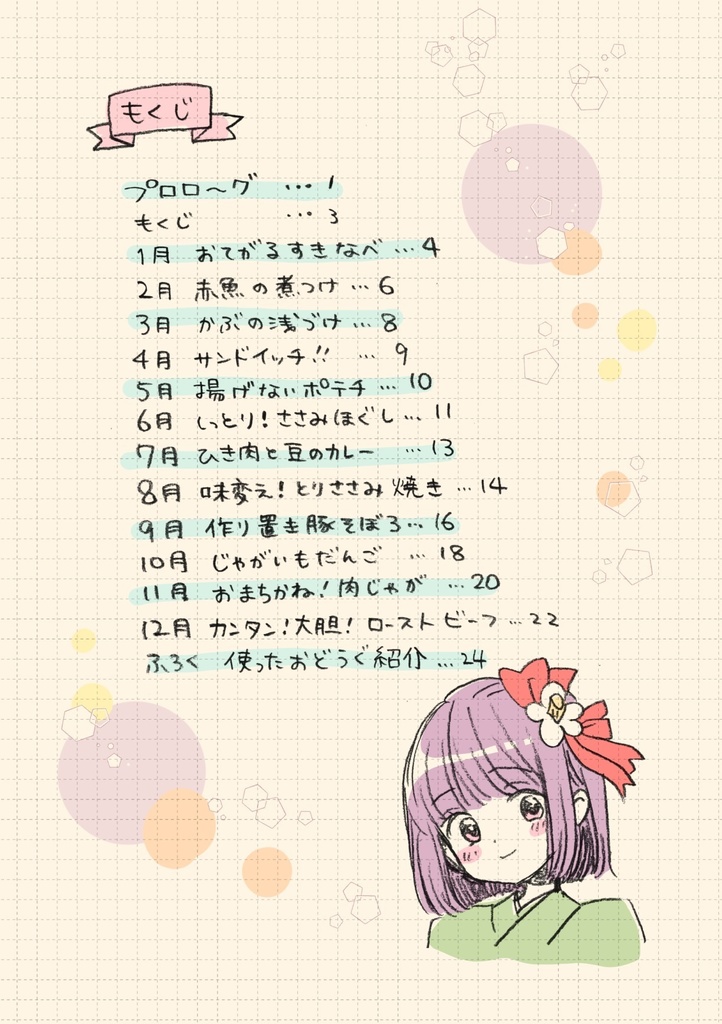 もくじ
プロローグ …1
もくじ …3
1月 おてがるすきなべ …4
2月 赤魚の煮つけ …6
3月 かぶの浅づけ …8
4月 サンドイッチ!! … 9
5月 揚げないポテチ …10
6月 しっとり!ささみほぐし… 11
7月 ひき肉と豆のカレー …13
8月 味変え!とりささみ焼き …14
9月 作り置き豚そぼろ… 16
10月 じゃがいもだんご … 18
11月 おまちかね!肉じゃが …20
12月 カンタン!大胆! ローストビーフ …22
ふろく 使ったおどうぐ紹介 …24